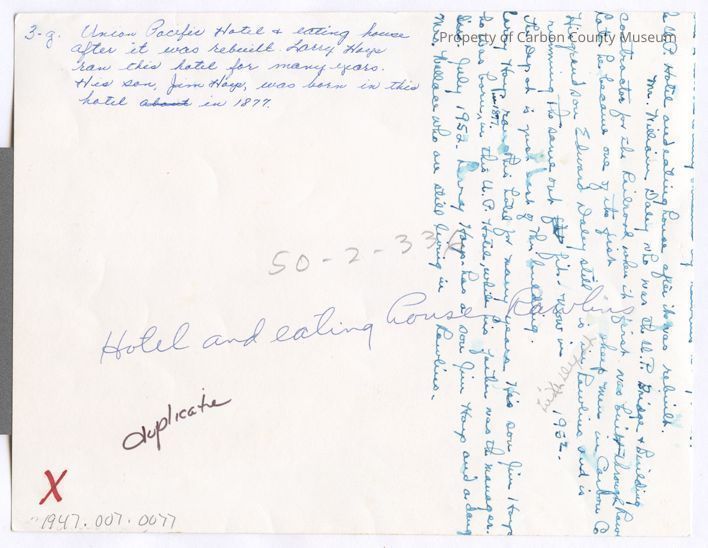 Property of Carbon County Museum
3-g. Union Pacific Hotel & eating house
after it was rebuilt. Larry Hays
ran this hotel for many years.
His son, Jim Hays, was born in this
hotel about in 1877.
U.P. Hotel and eating house after it was rebuilt.
Mr. William Daley who was the U.P. Bridge & Building
contractor for the Railroad when it first was built through
later he became one of the first sheep men in Carbon Co
His grandson Edward Daley still is in Rawlins and is
running the same out fit now in 1952.
The Depot is just east of this building.
Larry Hays ran this hotel for many years. His son Jim Hays
was born in 1877 in this U.P. Hotel, while his father was the manager.
July 1952. Hays has a son Jim Hays and a
Mrs. Wallace who are still living in Rawlins.
50-2-33
Hotel and eating house Rawlins
duplicate
X
1947.007.0077